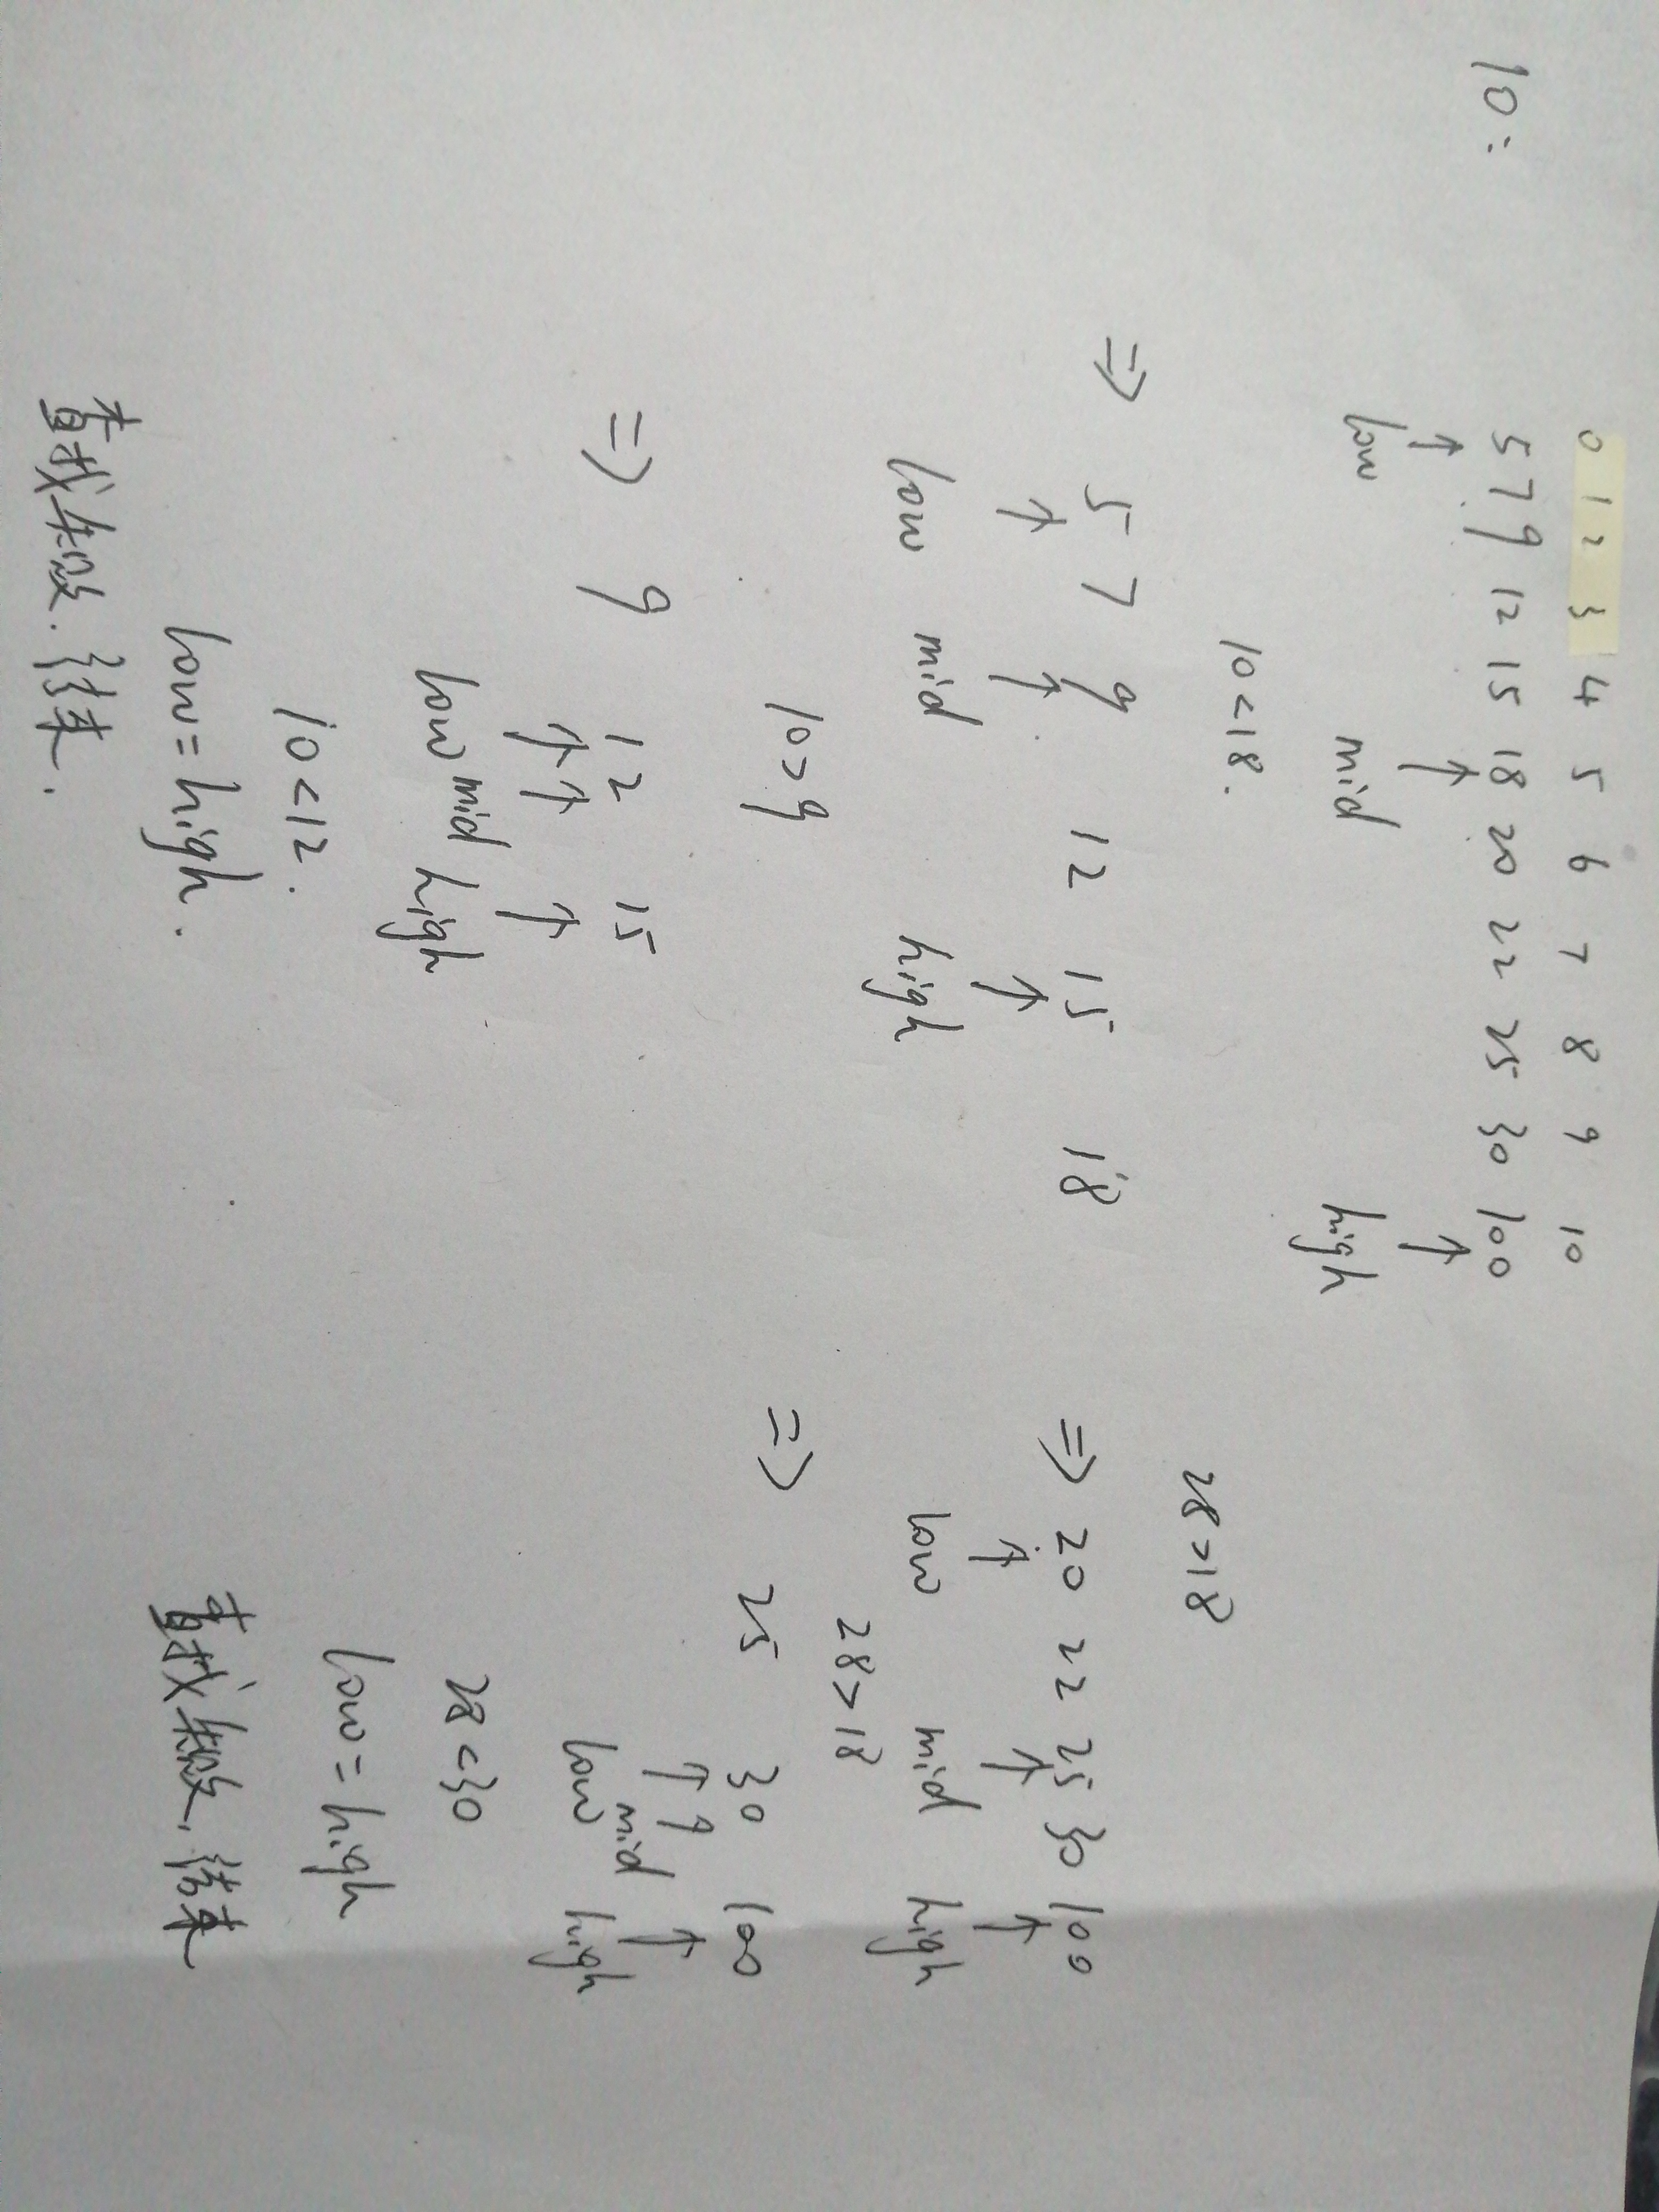 0 1 2 3 4 5 6 7 8 9 10
10: 5 7 9 12 15 18 20 22 25 30 100
↑ ↑ ↑
low mid high
10<18.
⇒ 5 7 9 12 15 18
↑ ↑ ↑
low mid high
10>9
⇒ 9 12 15
↑ ↑ ↑
low mid high
10<12.
low=high.
查找失败.结束.
28>18
⇒ 20 22 25 30 100
↑ ↑ ↑
low mid high
28>18
⇒ 25 30 100
↑ ↑ ↑
low mid high
28<30
low=high
查找失败,结束